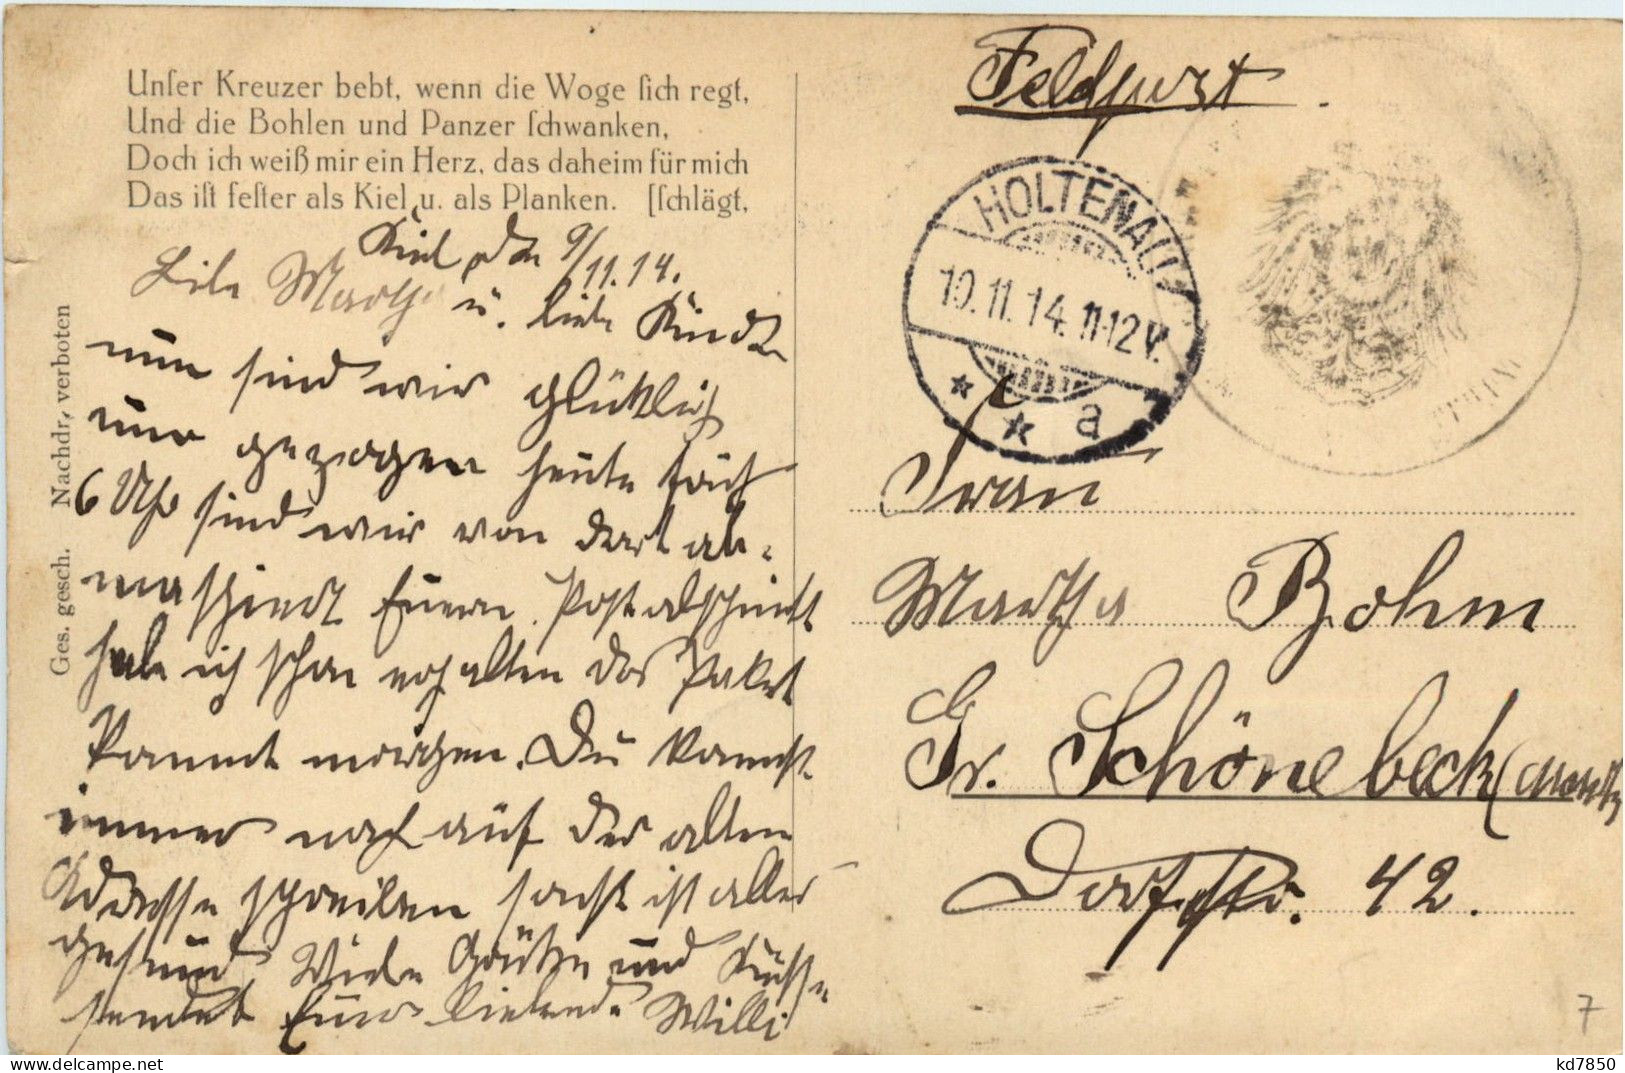 Unser Kreuzer bebt, wenn die Woge sich regt,
Und die Bohlen und Panzer schwanken,
Doch ich weiß mir ein Herz, das daheim für mich
Das ist fester als Kiel u. als Planken. [schlägt,
Ges. gesch. Nachdr. verboten
Kiel, den 9/11.14.
Liebe Martha u. liebe Kinder
nun sind wir glücklich
umgezogen heute früh
6 Uhr sind wir von dort ab-
maschiert Euern Postabschnitt
habe ich schon erhalten das Paket
kommt morgen. Du kannst
immer noch auf der alten
Adresse schreiben sonst ist alles
gesund Viele Grüße und Küsse
sendet Euer liebender Willi
Feldpost.
HOLTENAU
10.11.14.11-12V.
* * a
Frau
Martha Böhm
Gr. Schönebeck (
Dorfstr. 42.
7
kd7850